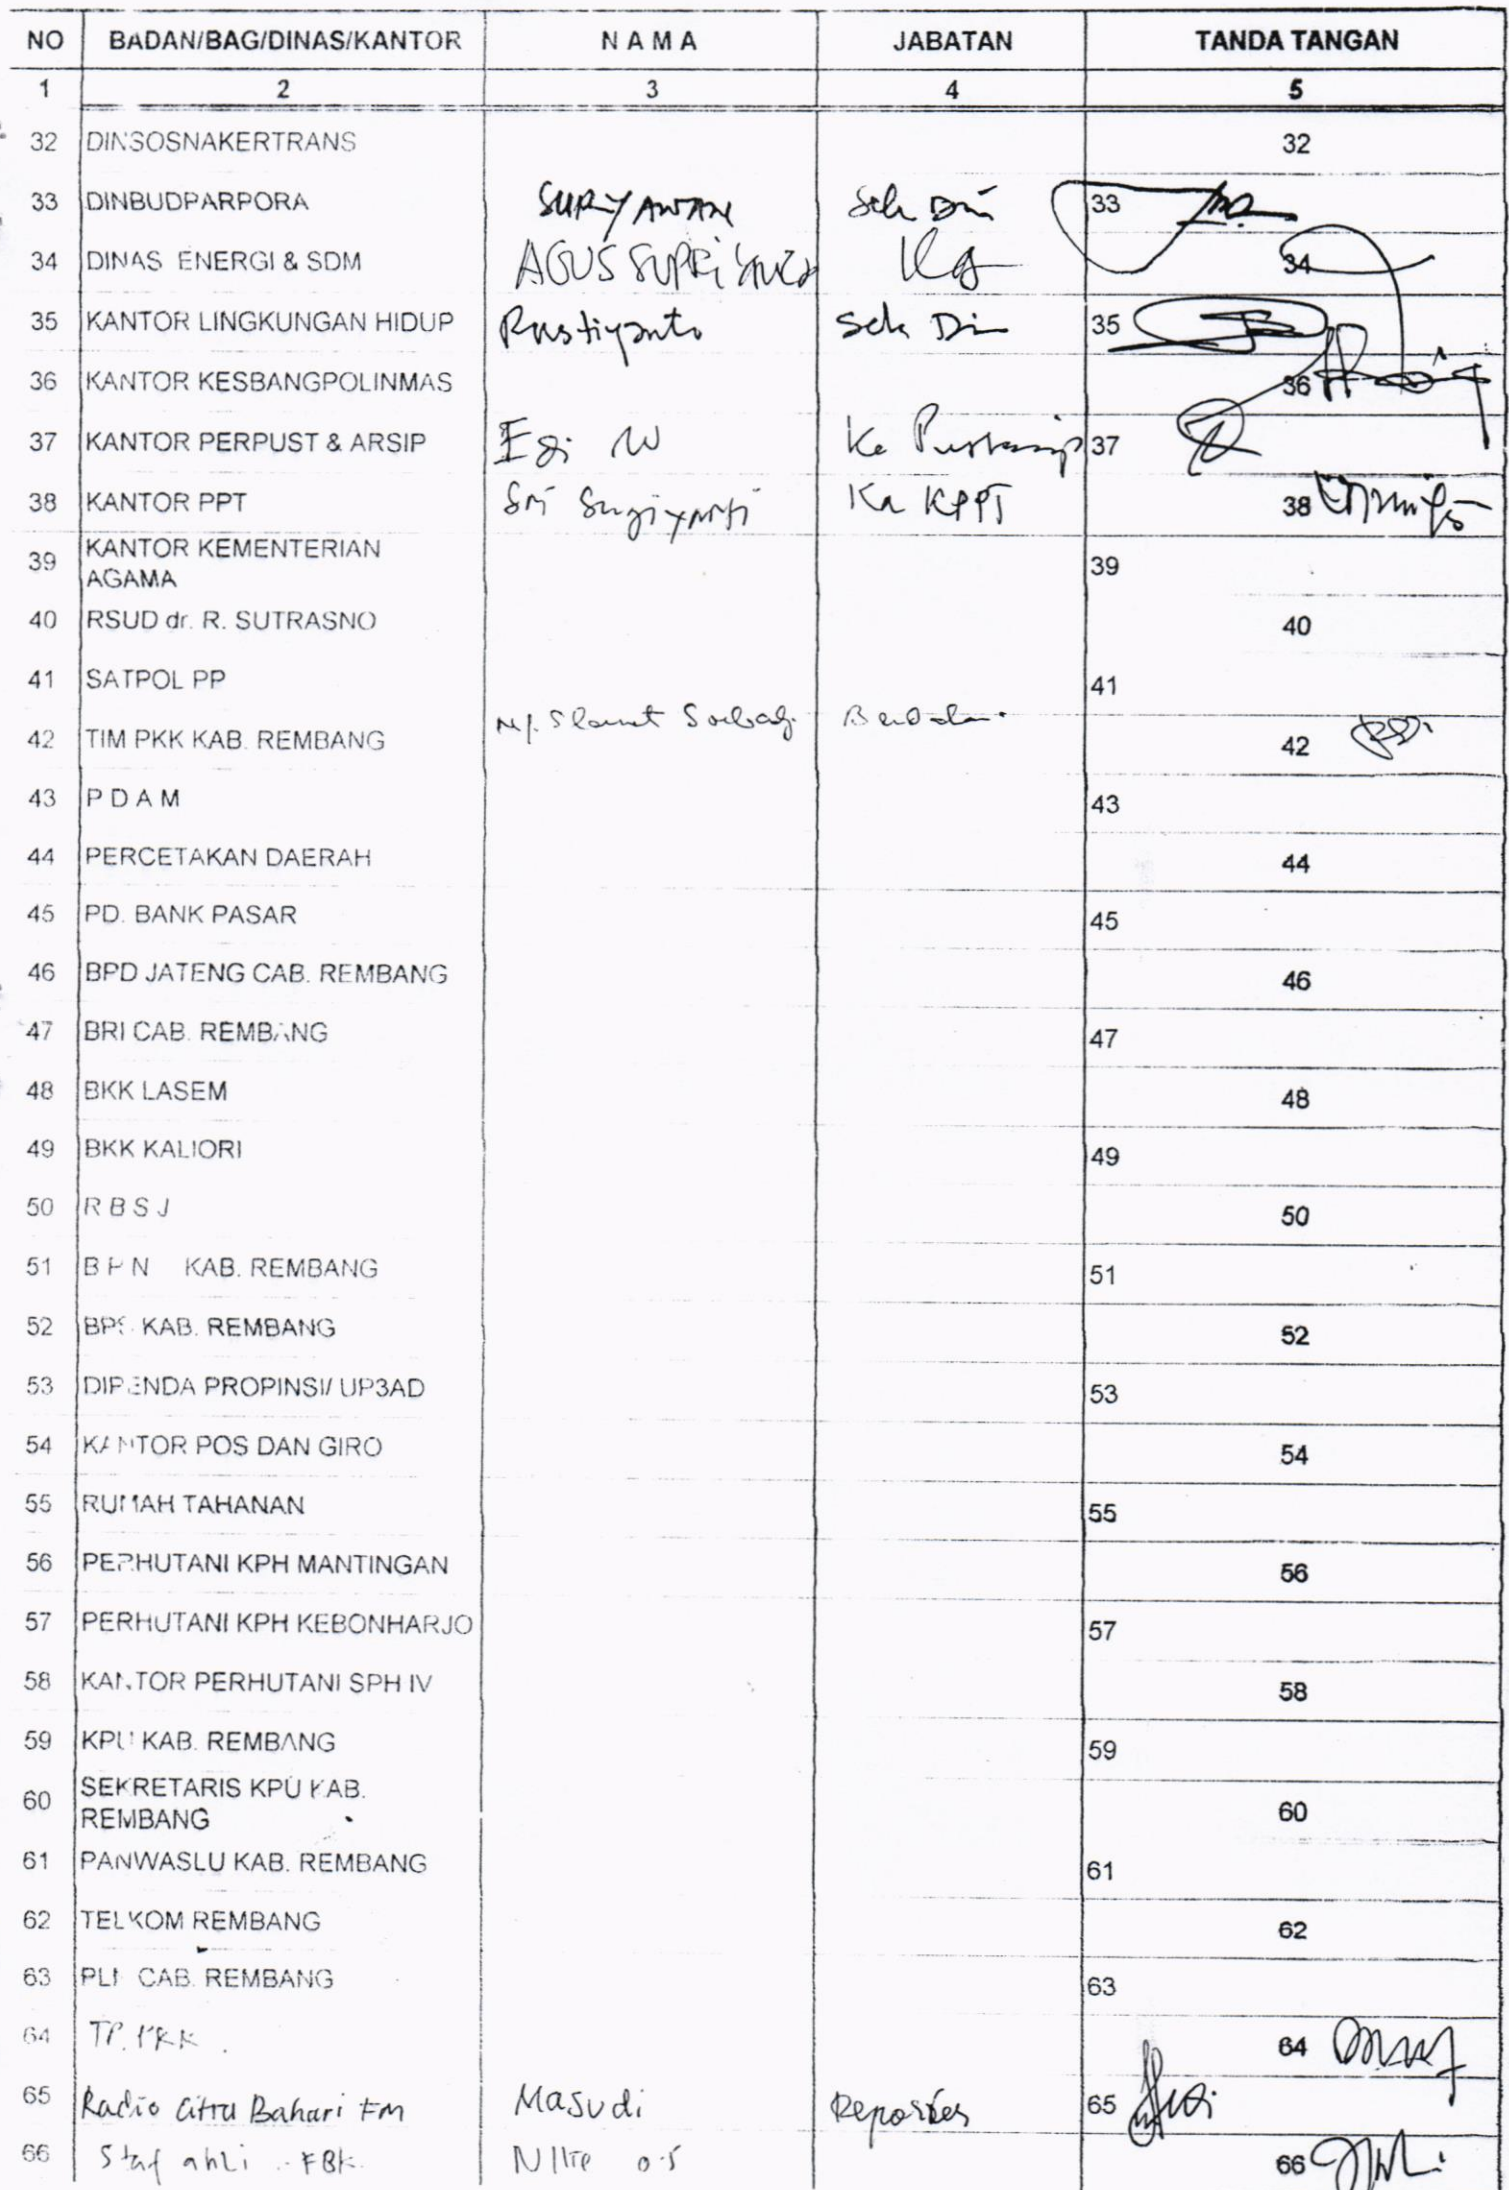 NO BADAN/BAG/DINAS/KANTOR N A M A JABATAN TANDA TANGAN
1 2 3 4 5
32 DINSOSNAKERTRANS 32
33 DINBUDPARPORA SURYAWAN Sek Din 33
34 DINAS ENERGI & SDM AGUS SUPRIYANTO Ka 34
35 KANTOR LINGKUNGAN HIDUP Rustiyanto Sek Din 35
36 KANTOR KESBANGPOLINMAS 36
37 KANTOR PERPUST & ARSIP W Ka 37
38 KANTOR PPT Sri Sugiyarti Ka KPPT 38
39 KANTOR KEMENTERIAN
AGAMA 39
40 RSUD dr. R. SUTRASNO 40
41 SATPOL PP 41
42 TIM PKK KAB. REMBANG Ny. Slamet 42
43 P D A M 43
44 PERCETAKAN DAERAH 44
45 PD. BANK PASAR 45
46 BPD JATENG CAB. REMBANG 46
47 BRI CAB. REMBANG 47
48 BKK LASEM 48
49 BKK KALIORI 49
50 R B S J 50
51 B P N KAB. REMBANG 51
52 BPS KAB. REMBANG 52
53 DIPENDA PROPINSI/ UP3AD 53
54 KANTOR POS DAN GIRO 54
55 RUMAH TAHANAN 55
56 PERHUTANI KPH MANTINGAN 56
57 PERHUTANI KPH KEBONHARJO 57
58 KANTOR PERHUTANI SPH IV 58
59 KPU KAB. REMBANG 59
60 SEKRETARIS KPU KAB.
REMBANG 60
61 PANWASLU KAB. REMBANG 61
62 TELKOM REMBANG 62
63 PLN CAB. REMBANG 63
64 TP. PKK . 64
65 Radio Citra Bahari FM Masudi Reporter 65
66 Staf ahli 66